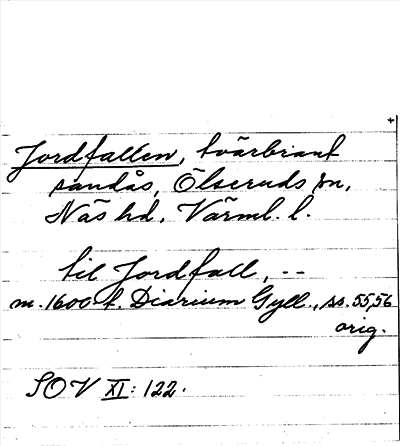 Jordfallen, tvärbrant
sandås, Ölseruds sn,
Näs hd, Värml. l.
til Jordfall, --
m. 1600-t. Diarium Gyll., ss. 55, 56
orig.
SOV XI: 122.